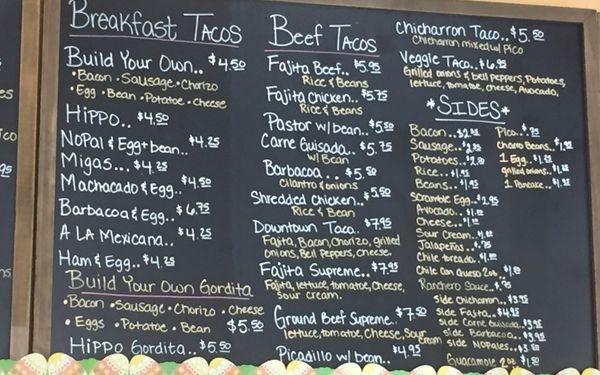 Breakfast TACOS
Build Your Own.. $4.50
•Bacon •Sausage •Chorizo
•Egg •Bean •Potatoe •Cheese
HiPPO.. $4.50
NOPal & Egg+bean.. $4.25
Migas... $4.25
Machacado & Egg.. $4.50
Barbacoa & Egg.. $6.75
A LA Mexicana.. $4.25
Ham & Egg.. $4.25
Build Your Own Gordita
•Bacon •Sausage •Chorizo •Cheese
•Eggs •Potatoe •Bean $5.50
HiPPO Gordita.. $5.50
Beef TACOS
Fajita Beef.. $5.95
Rice & Beans
Fajita Chicken.. $5.75
Rice & Beans
Pastor w/bean.. $5.50
Carne Guisada.. $5.75
w/Bean
Barbacoa... $5.50
Cilantro & onions
Shredded Chicken.. $5.50
Rice & Bean
Downtown Taco.. $7.95
Fajita, Bacon, Chorizo, grilled
Onions, Bell Peppers, Cheese.
Fajita Supreme.. $7.95
Fajita, lettuce, tomatoe, Cheese,
Sour cream.
Ground Beef Supreme.. $7.50
lettuce, tomatoe, Cheese, Sour
Cream
Picadillo w/bean.. $4.95
Chicharron Taco.. $5.50
Chicharron mixed w/ Pico
Veggie Taco.. $6.95
Grilled onions & bell Peppers, Potatoes,
lettuce, tomatoe, cheese, Avocado.
*SIDES*
Bacon..
Sausage..
Potatoes..
Rice..
Beans..
Scramble Egg.. $2.95
Avocado..
Cheese..
Sour Cream..
Jalapeños..
Chile toreado..
Chile con queso 2oz..
Ranchero Sauce..
side Chicharron..
side Fajita..
side Carne Guisada..
side Barbacoa..
side NOPales..
Guacamole 2oz
Pico..
Charro Beans..
1 Egg..
grilled onions..
1 Pancake..